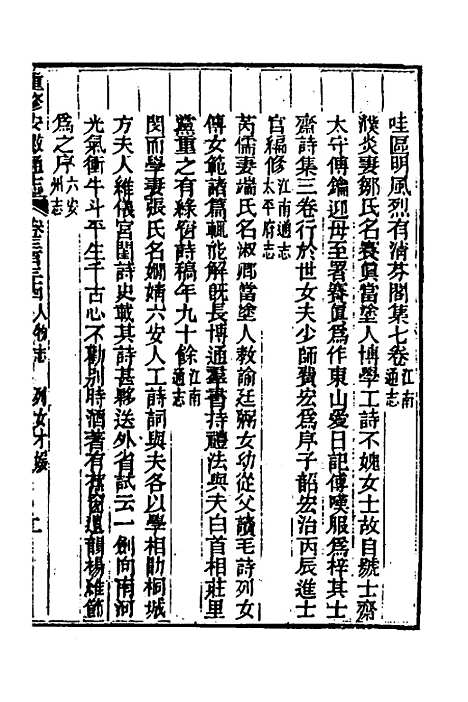 哇區明風烈有清芬閣集七卷江南通志
濮炎妻鄒氏名賽眞當塗人博學工詩不媿女士故自號士齋
太守傅鑰迎母至署賽眞爲作東山愛日記傅嘆服爲梓其士
齋詩集三卷行於世女夫少師費宏爲序子韶宏治丙辰進士
官編修江南通志太平府志
芮儒妻端氏名淑卿當塗人教諭廷弼女幼從父讀毛詩列女
傳女範諸篇輒能解旣長博通羣書持禮法與夫白首相莊里
黨重之有綠窗詩稿年九十餘江南通志
閔而學妻張氏名嫺婧六安人工詩詞與夫各以學相勛桐城
方夫人維儀宮閨詩史載其詩甚夥送外省試云一劍向南河
光氣衝牛斗平生千古心不勸別時酒著有蓉窗遺韻楊維節
爲之序六安州志
重修安徽通志 卷三百三十四 人物志 列女才媛